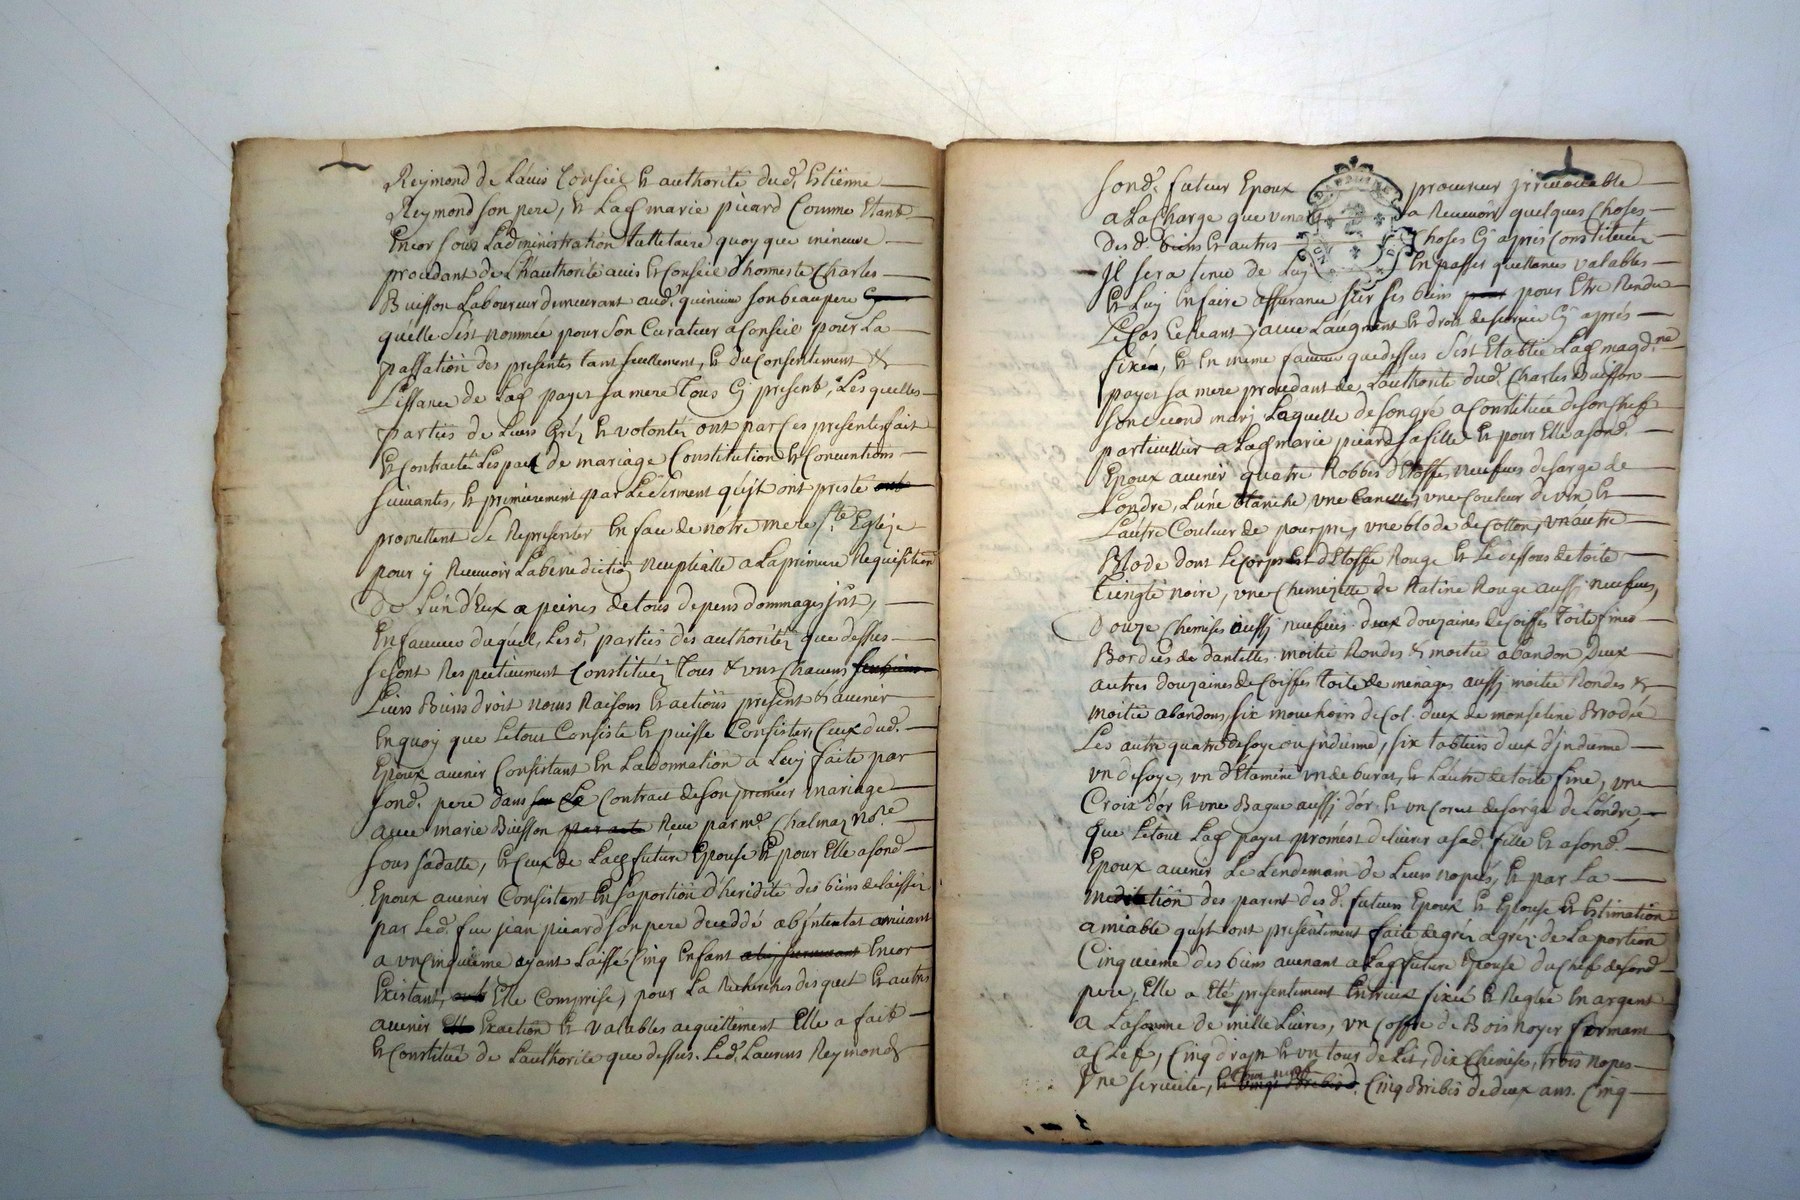 Reymond de Lavis Conseil et authorité dud. Estienne
Reymond son pere, et Lad marie picard Comme Etant
Encor sous Ladministration tuttelaire quoy que mineure
procedant de L'hauthorité avis et Conseil d'honneste Charles
Buisson Laboureur demeurant aud. son beau pere
qu'elle s'est nommée pour son Curateur a Conseil pour La
passation des presentes tant seullement, et du Consentement &
de Lad payet sa mere Tous Cy present, Les quelles
parties de Leurs Gréz et volontéz ont par Ces presentes fait
et Contracté Les pact de mariage Constitution et Conventions
suivantes, et premierement par Le serment qu'ils ont presté
promettent Se Representer En face de nótre mere Ste Eglize
pour ÿ Recevoir La benediction Neuptialle a La premiere Requisition
De L'un d'Eux a peines de tous depens dommages
En faveur duquel, Lesd. parties des authoritéz que dessus
se sont Respectivement Constituéz Tous & uns Chacuns
Leurs Biens droit noms Raisons et actions present & avenir
En quoy que Le tout Consiste et puisse Consister, Ceux dud.
Epoux avenir Consistant En La donnation a Luy faite par
sond. pere dans Le Contract de son premier mariage
avec marie Buisson Receu par me. Chalmaz nore
sous sa datte, et Ceux de Lad future Epouse et pour Elle a sond
Epoux avenir Consistent En sa portion d'heridité des biens delaissez
par Led. feu jean picard son pere deceddé abjntestat arrivant
a un Cinquieme ayant Laissé Cinq Enfant Encor
Existant, Elle Comprise, pour La Recherches desquels et autres
avenir Exaction et valables acquittement Elle a fait
et Constitué de L'authorité que dessus. Led. Laurens Reymond
sond. futur Epoux procureur jrrevocable
a La Charge que venant a Recevoir quelques Choses
desd. biens et autres Choses Cy aprés Constituées
Jl sera tenu de Luy En passer quittances valables
et Luy En faire assurance sur ses biens pour Etre Rendue
Le Cas Echeant, avec L'augment et droit de survie Cy aprés
fixée, et En meme faveur que dessus s'est Etablie Lad. magdne
payet sa mere procedant de L'authorité dud. Charles Buisson
son second mari Laquelle de son gré a Constituée de son Chef
particullier a Lad. marie picard sa fille et pour Elle a sond.
Epoux avenir quatre Robbes d'Etoffe neufves de sarge de
Londre, L'une blanche une Canelle, une Couleur de vin et
L'autre Couleur de pourpre, une blode de Cotton, un autre
Blode dont Le Corps est d'Etoffe Rouge et Le dessous de toile
tiengte noire, une Chemizette de Ratine Rouge aussj neufves,
Douze Chemises aussj neufves. deux douzaines de Coiffes Toile fines
Bordées de dantelles. moitié Rondes & moitié abandon, Deux
autres douzaines de Coiffes toile de menages aussj moitié Rondes &
moitié abandons, six mouchoirs de Col. deux de monseline Brodée
Les autre quatre de soye ou jndienne, six tabliers deux d'jndienne
un de soye, un d'Etamine un de burat, et L'autre de toile fine, une
Croix d'or et une Bague aussj d'or et un Corcet de sarge de Londre
Que Le tout Lad payet promést delivrer a sad. fille et a sond.
Epoux avenir Le Lendemain de Leurs nopces, et par La
mediation des parent desd. futurs Epoux et Epouse et Estimation
amiable qu'ils ont presentement faite de gréz a gréz de La portion
Cinquieme des biens avenant a Lad future Epouse du Chef de sond.
pere, Elle a Eté presentement fixée et Reglée En argent
a La somme de mille Livres, un Coffre de Bois noyer fermant
a Clef, Cinq draps et un tour de Lit, dix Chemises, trois napes
Une serviette, Cinq Brebis de deux ans. Cinq